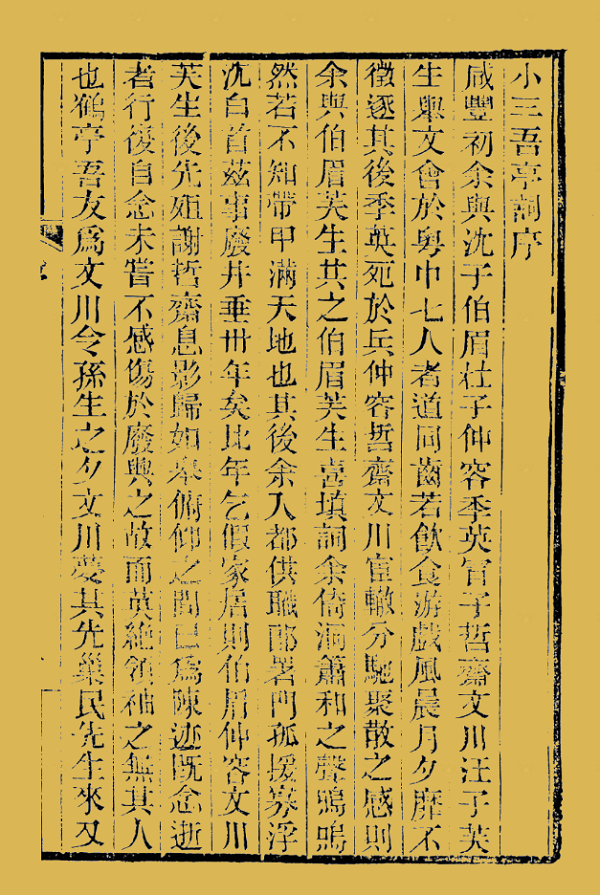 小三吾亭詞序
咸豐初余與沈子伯眉杜子仲容季英冒子哲齋文川汪子芙
生舉文會於粵中七人者道同齒若飲食游戲風晨月夕靡不
徵逐其後季英死於兵仲容哲齋文川宦轍分馳聚散之感則
余與伯眉芙生共之伯眉芙生喜填詞余倚洞簫和之聲嗚嗚
然若不知帶甲滿天地也其後余入都供職郎署門孤援寡浮
沈白首茲事廢井垂卅年矣比年乞假家居則伯眉仲容文川
芙生後先殂謝哲齋息影歸如皋俯仰之間已為陳迹既念逝
者行復自念未嘗不感傷於廢興之故而英絕領袖之無其人
也鶴亭吾友為文川令孫生之夕文川夢其先巢民先生來又